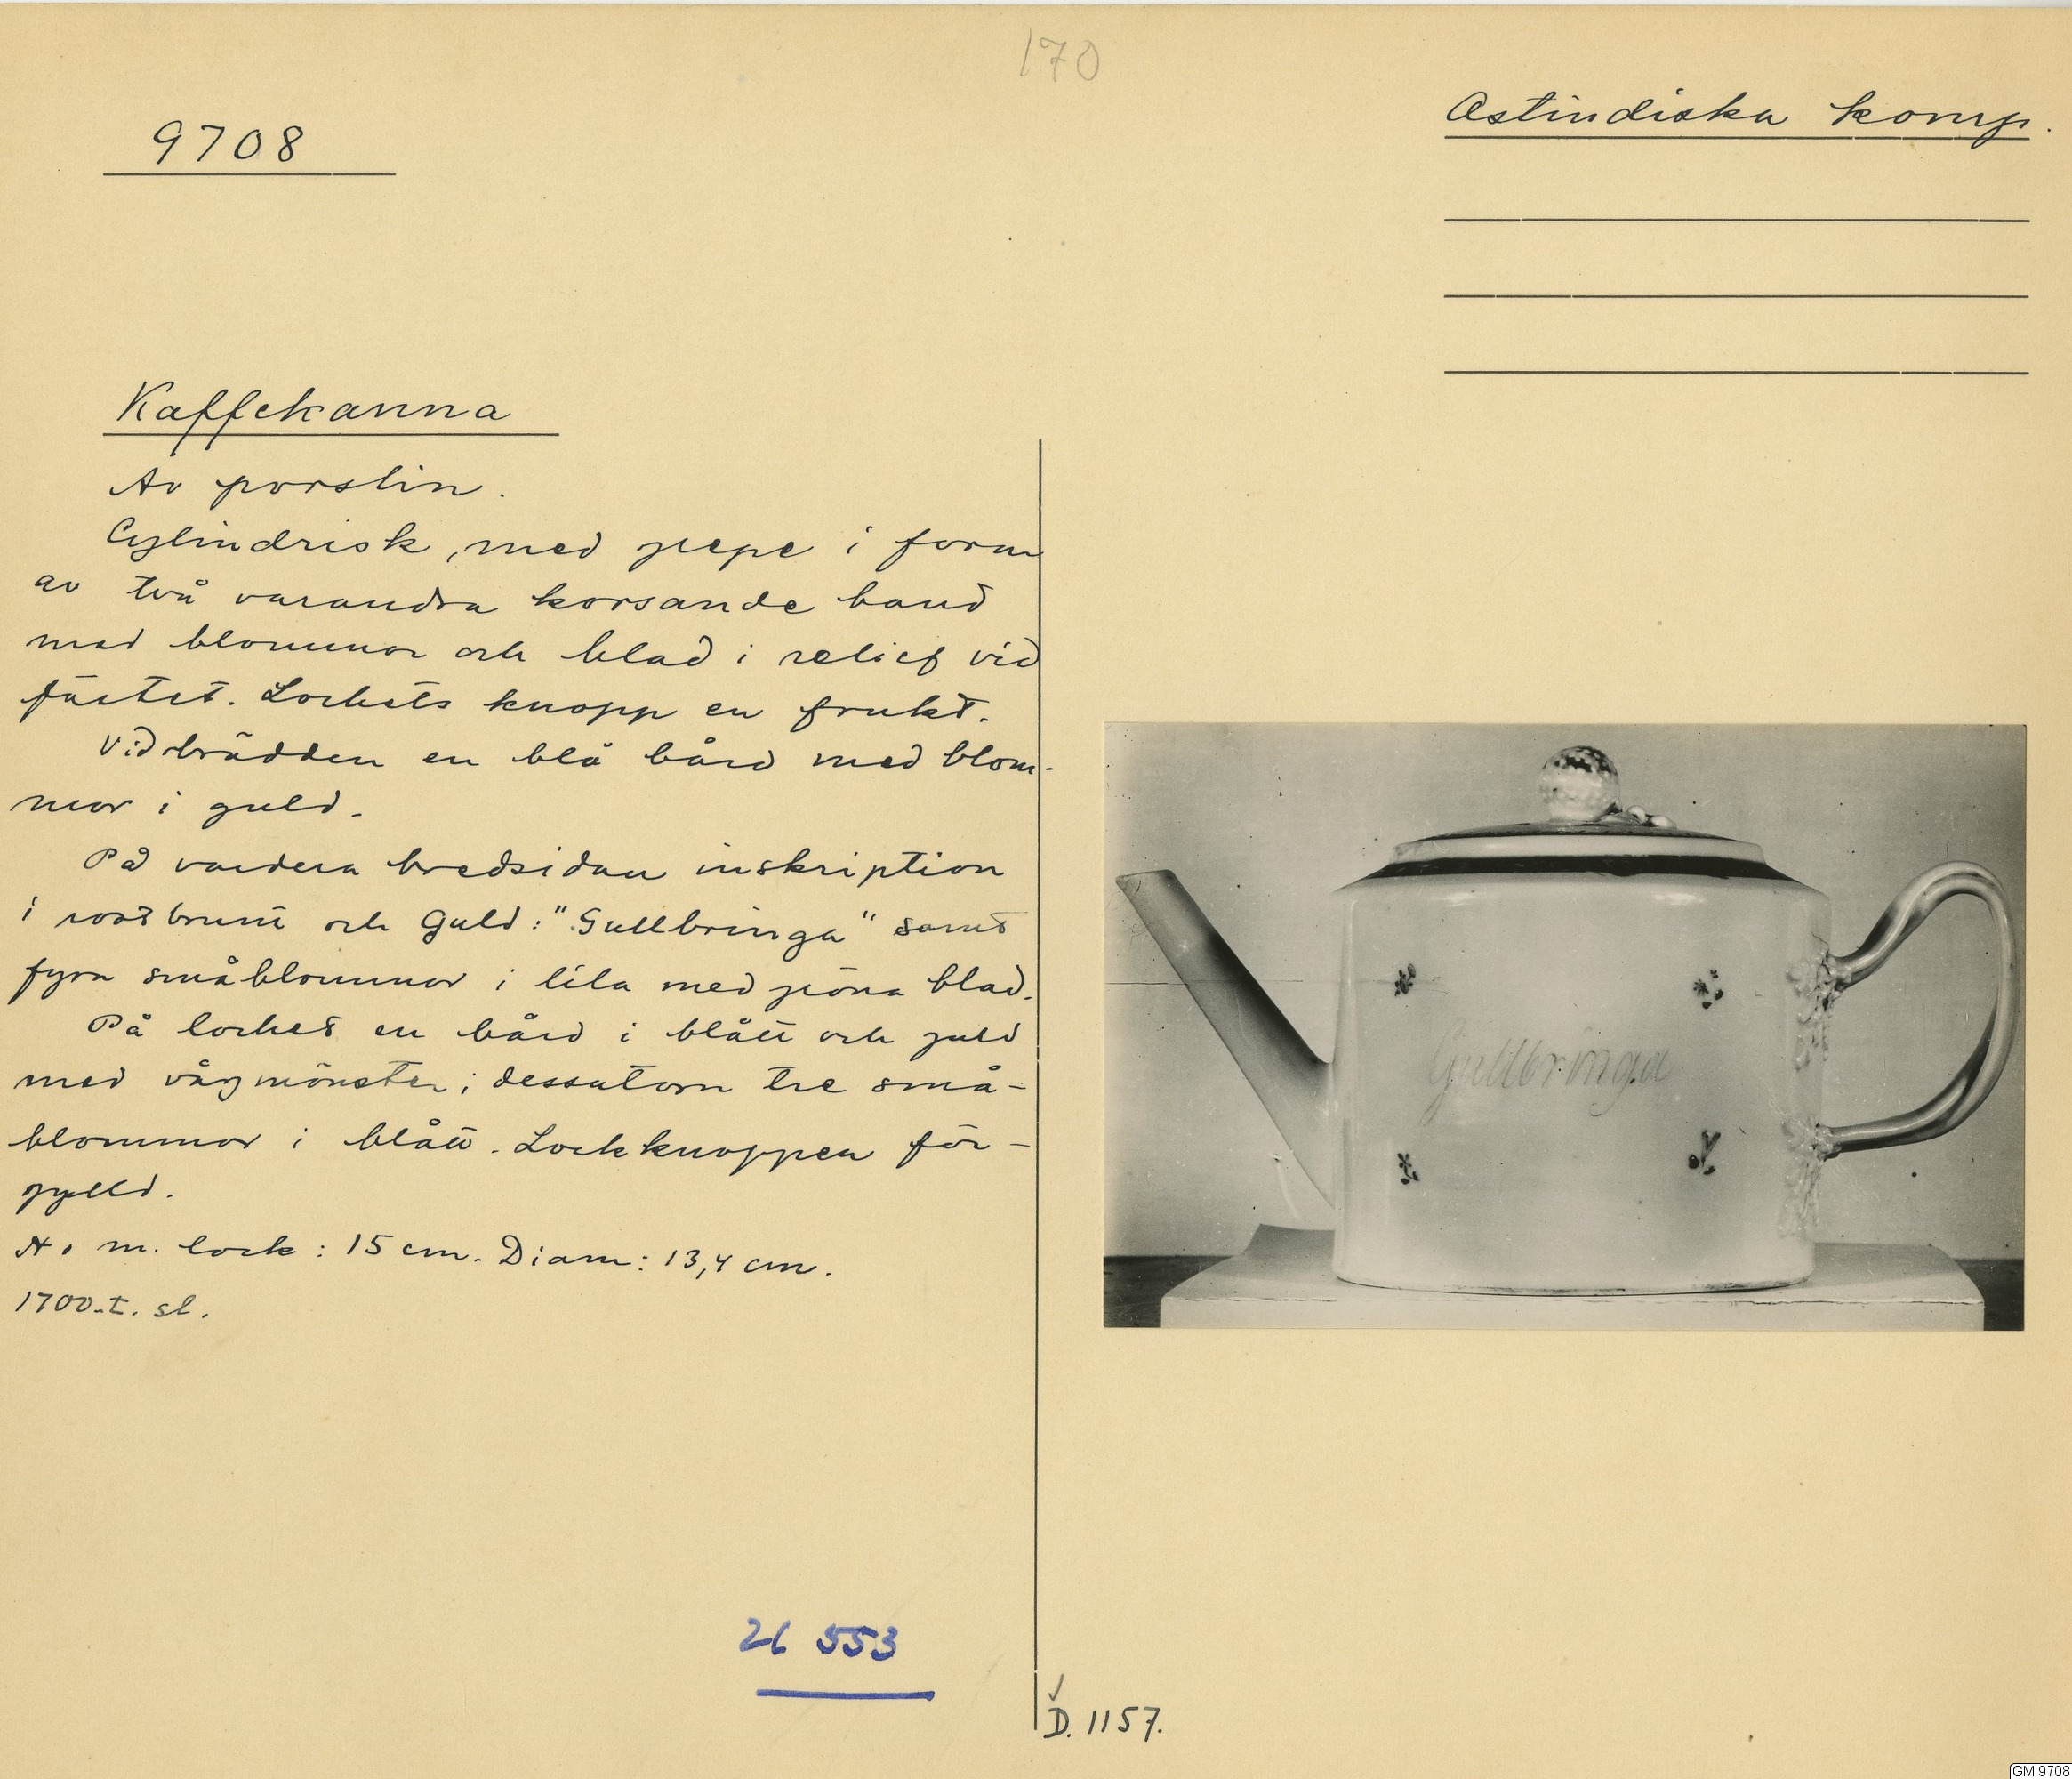 170
9708
Ostindiska komp.
Kaffekanna
Av porslin.
Cylindrisk, med grepe i form
av två varandra korsande band
med blommor och blad i relief vid
fästet. Lockets knopp en frukt.
Vid brädden en blå bård med blom-
mor i guld.
På vardera bredsidan inskription
i rostbrunt och Guld: "Gullbringa" samt
fyra småblommor i lila med gröna blad.
På locket en bård i blått och guld
med vågmönster; dessutom tre små-
blommor i blått. Lockknoppen för-
gylld.
H. m. lock: 15 cm. Diam: 13,4 cm.
1700-t. sl.
Gullbringa
26 553
D. 1157.
GM:9708